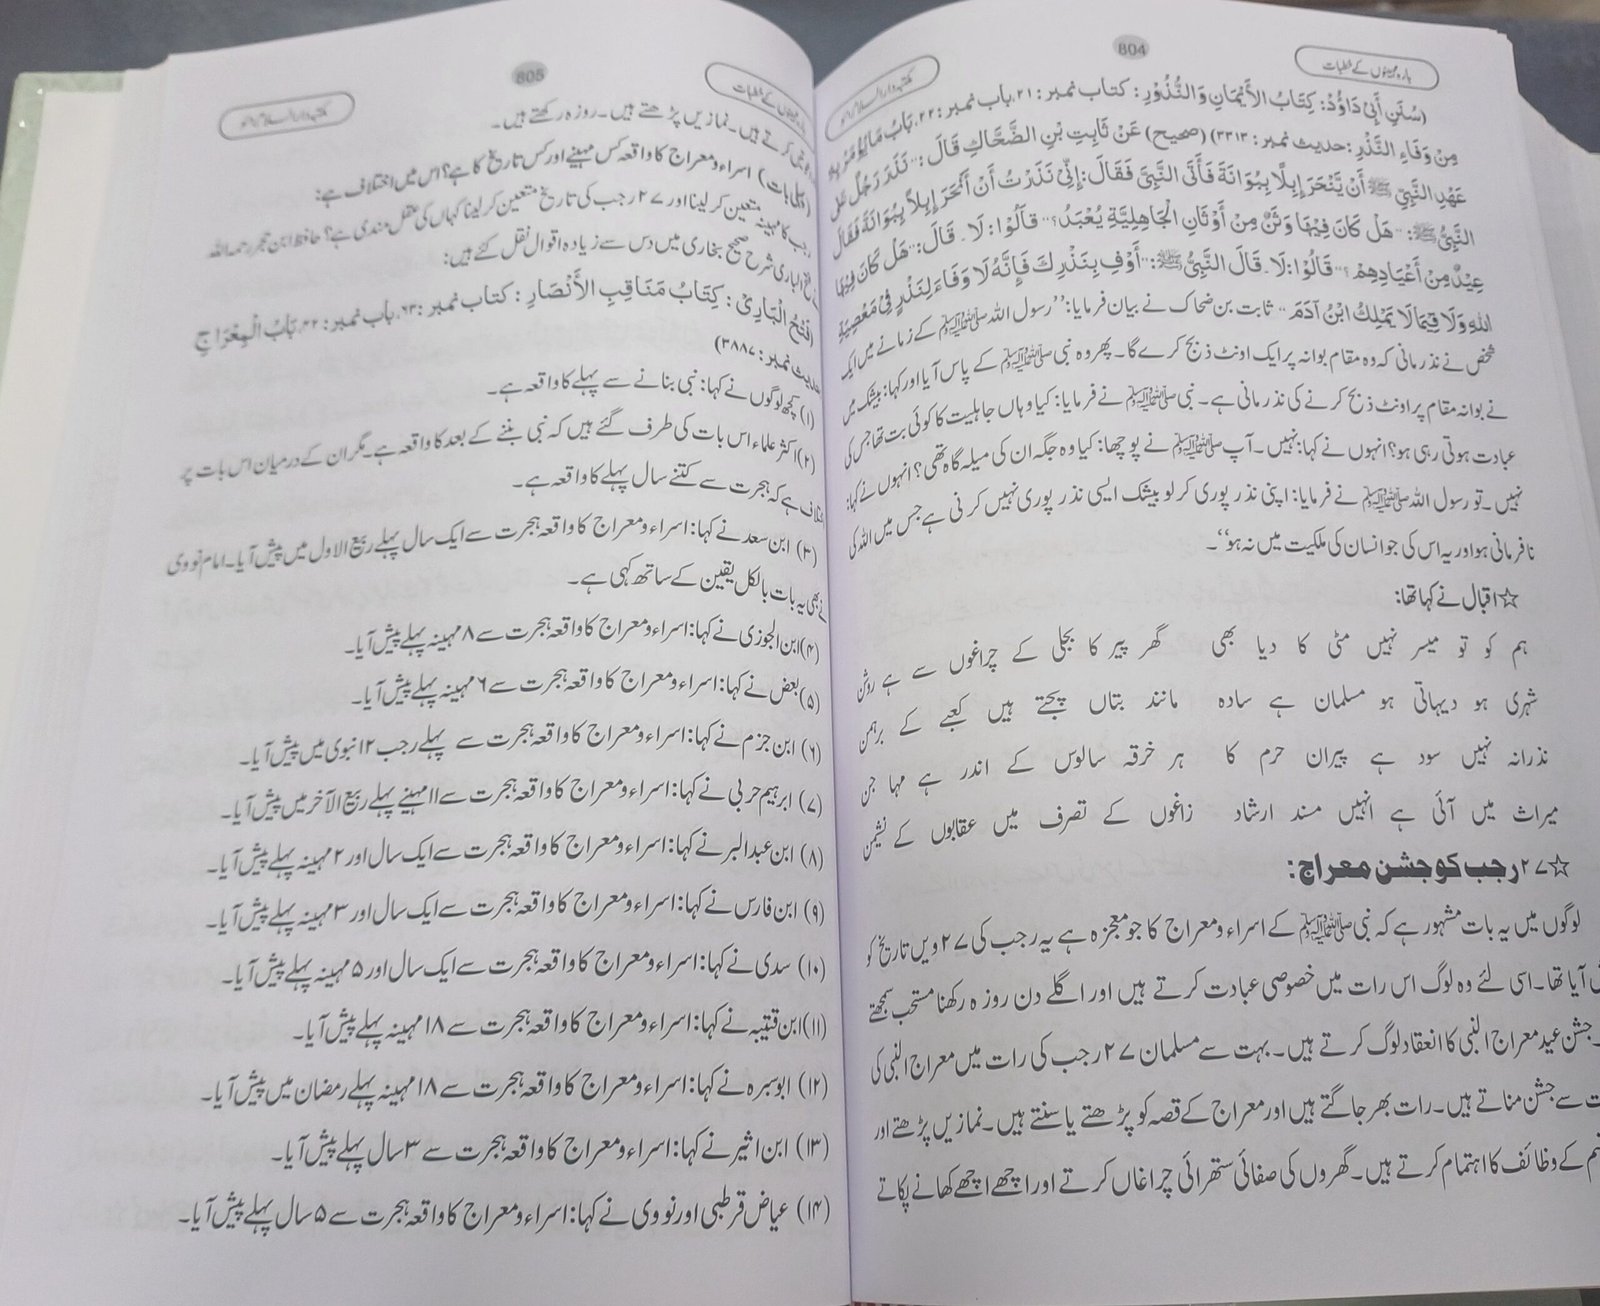 804
بارہ مہینوں کے خطبات
(سُنَنِ أَبِیْ دَاوُدْ: كِتَابُ الْأَيْمَانِ وَالنُّذُوْرِ: کتاب نمبر: ۲۱، باب نمبر: ۲۲، بَابُ مَا يُؤْمَرُ بِهِ
مِنْ وَفَاءِ النَّذْرِ: حدیث نمبر: ۳۳۱۳) (صحیح) عَنْ ثَابِتِ بْنِ الضَّحَّاكِ قَالَ: "نَذَرَ رَجُلٌ عَلَى
عَهْدِ النَّبِيِّ ﷺ أَنْ يَنْحَرَ إِبِلًا بِبُوَانَةَ فَأَتَى النَّبِيَّ فَقَالَ: إِنِّيْ نَذَرْتُ أَنْ أَنْحَرَ إِبِلًا بِبُوَانَةَ فَقَالَ
النَّبِيُّ ﷺ: "هَلْ كَانَ فِيْهَا وَثَنٌ مِنْ أَوْثَانِ الْجَاهِلِيَّةِ يُعْبَدُ؟" قَالُوْا: لَا۔ قَالَ: "هَلْ كَانَ فِيْهَا
عِيْدٌ مِنْ أَعْيَادِهِمْ؟" قَالُوْا: لَا۔ قَالَ النَّبِيُّ ﷺ: "أَوْفِ بِنَذْرِكَ فَإِنَّهُ لَا وَفَاءَ لِنَذْرٍ فِيْ مَعْصِيَةِ
اللهِ وَلَا فِيْمَا لَا يَمْلِكُ ابْنُ آدَمَ" ثابت بن ضحاک نے بیان فرمایا: "رسول اللہ ﷺ کے زمانے میں ایک
شخص نے نذر مانی کہ وہ مقام بوانہ پر ایک اونٹ ذبح کرے گا۔ پھر وہ نبی ﷺ کے پاس آیا اور کہا: بیشک میں
نے بوانہ مقام پر اونٹ ذبح کرنے کی نذر مانی ہے۔ نبی ﷺ نے فرمایا: کیا وہاں جاہلیت کا کوئی بت تھا جس کی
عبادت ہوتی رہی ہو؟ انہوں نے کہا: نہیں۔ آپ ﷺ نے پوچھا: کیا وہ جگہ ان کی میلہ گاہ تھی؟ انہوں نے کہا:
نہیں۔ تو رسول اللہ ﷺ نے فرمایا: اپنی نذر پوری کر لو بیشک ایسی نذر پوری نہیں کرنی ہے جس میں اللہ کی
نافرمانی ہو اور یہ اس کی جو انسان کی ملکیت میں نہ ہو"۔
☆ اقبال نے کہا تھا:
ہم کو تو میسر نہیں مٹی کا دیا بھی گھر پیر کا بجلی کے چراغوں سے ہے روشن
شہری ہو دیہاتی ہو مسلمان ہے سادہ مانند بتاں پجتے ہیں کعبے کے برہمن
نذرانہ نہیں سود ہے پیران حرم کا ہر خرقہ سالوس کے اندر ہے مہاجن
میراث میں آئی ہے انہیں مسند ارشاد زاغوں کے تصرف میں عقابوں کے نشیمن
☆ ۲۷ رجب کو جشن معراج:
لوگوں میں یہ بات مشہور ہے کہ نبی ﷺ کے اسراء ومعراج کا جو معجزہ ہے یہ رجب کی ۲۷ ویں تاریخ کو
آیا تھا۔ اسی لئے وہ لوگ اس رات میں خصوصی عبادت کرتے ہیں اور اگلے دن روزہ رکھنا مستحب سمجھتے
جشن عید معراج النبی کا انعقاد لوگ کرتے ہیں۔ بہت سے مسلمان ۲۷ رجب کی رات میں معراج النبی کی
سے جشن مناتے ہیں۔ رات بھر جاگتے ہیں اور معراج کے قصہ کو پڑھتے یا سنتے ہیں۔ نمازیں پڑھتے اور
کے وظائف کا اہتمام کرتے ہیں۔ گھروں کی صفائی ستھرائی چراغاں کرتے اور اچھے اچھے کھانے پکاتے
805
کے خطبات
کرتے ہیں۔ نمازیں پڑھتے ہیں۔ روزہ رکھتے ہیں۔
(پہلی بات) اسراء ومعراج کا واقعہ کس مہینے اور کس تاریخ کا ہے؟ اس میں اختلاف ہے:
رجب کا مہینہ متعین کر لینا اور ۲۷ رجب کی تاریخ متعین کر لینا کہاں کی عقل مندی ہے؟ حافظ ابن حجر رحمہ اللہ
الباری شرح صحیح بخاری میں دس سے زیادہ اقوال نقل کئے ہیں:
(فَتْحُ الْبَارِیْ: كِتَابُ مَنَاقِبِ الْأَنْصَارِ: کتاب نمبر: ۶۳، باب نمبر: ۴۲، بَابُ الْمِعْرَاجِ
حدیث نمبر: ۳۸۸۷)
(۱) کچھ لوگوں نے کہا: نبی بنانے سے پہلے کا واقعہ ہے۔
(۲) اکثر علماء اس بات کی طرف گئے ہیں کہ نبی بننے کے بعد کا واقعہ ہے۔ مگر ان کے درمیان اس بات پر
اختلاف ہے کہ ہجرت سے کتنے سال پہلے کا واقعہ ہے۔
(۳) ابن سعد نے کہا: اسراء ومعراج کا واقعہ ہجرت سے ایک سال پہلے ربیع الاول میں پیش آیا۔ امام نووی
نے بھی یہ بات بالکل یقین کے ساتھ کہی ہے۔
(۴) ابن الجوزی نے کہا: اسراء ومعراج کا واقعہ ہجرت سے ۸ مہینہ پہلے پیش آیا۔
(۵) بعض نے کہا: اسراء ومعراج کا واقعہ ہجرت سے ۶ مہینہ پہلے پیش آیا۔
(۶) ابن حزم نے کہا: اسراء ومعراج کا واقعہ ہجرت سے پہلے رجب ۱۲ نبوی میں پیش آیا۔
(۷) ابرہیم حربی نے کہا: اسراء ومعراج کا واقعہ ہجرت سے ۱۱ مہینے پہلے ربیع الآخر میں پیش آیا۔
(۸) ابن عبد البر نے کہا: اسراء ومعراج کا واقعہ ہجرت سے ایک سال اور ۲ مہینہ پہلے پیش آیا۔
(۹) ابن فارس نے کہا: اسراء ومعراج کا واقعہ ہجرت سے ایک سال اور ۳ مہینہ پہلے پیش آیا۔
(۱۰) سدی نے کہا: اسراء ومعراج کا واقعہ ہجرت سے ایک سال اور ۵ مہینہ پہلے پیش آیا۔
(۱۱) ابن قتیبہ نے کہا: اسراء ومعراج کا واقعہ ہجرت سے ۱۸ مہینہ پہلے پیش آیا۔
(۱۲) ابو سبرہ نے کہا: اسراء ومعراج کا واقعہ ہجرت سے ۱۸ مہینہ پہلے رمضان میں پیش آیا۔
(۱۳) ابن اثیر نے کہا: اسراء ومعراج کا واقعہ ہجرت سے ۳ سال پہلے پیش آیا۔
(۱۴) عیاض قرطبی اور نووی نے کہا: اسراء ومعراج کا واقعہ ہجرت سے ۵ سال پہلے پیش آیا۔